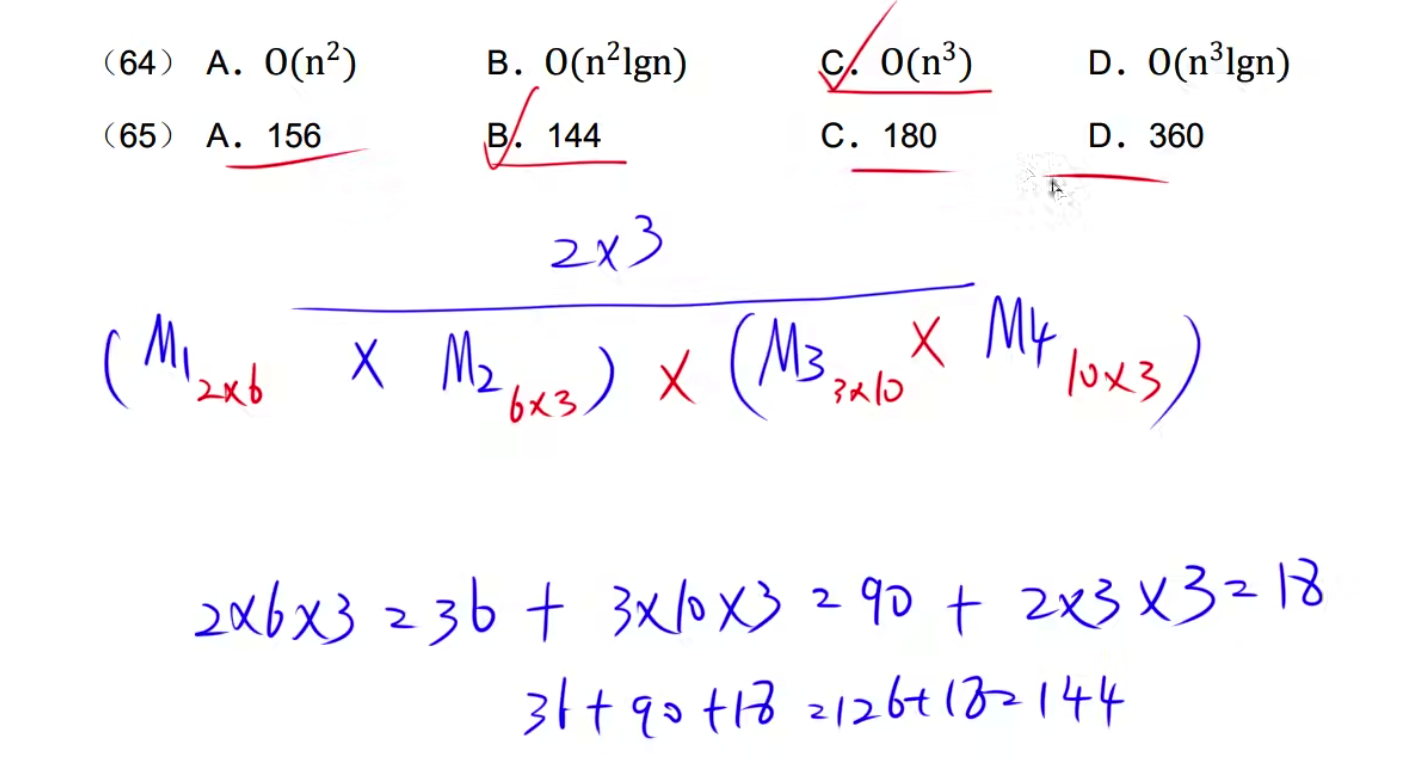 （64） A. O(n²) B. O(n²lgn) C. O(n³) D. O(n³lgn)
（65） A. 156 B. 144 C. 180 D. 360
2×3
(M1 2×6 × M2 6×3) × (M3 3×10 × M4 10×3)
2×6×3=36 + 3×10×3=90 + 2×3×3=18
36+90+18=126+18=144